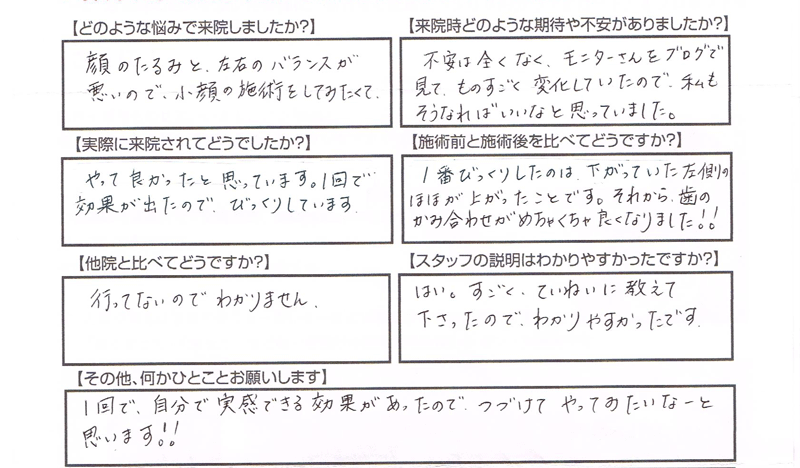 【どのような悩みで来院しましたか?】
顔のたるみと、左右のバランスが
悪いので、小顔の施術をしてみたくて、
【来院時どのような期待や不安がありましたか?】
不安は全くなく、モニターさんをブログで
見て、ものすごく変化していたので、私も
そうなればいいなと思っていました。
【実際に来院されてどうでしたか?】
やって良かったと思っています。1回で
効果が出たので、びっくりしています。
【施術前と施術後を比べてどうですか?】
1番びっくりしたのは、下がっていた左側の
ほほが上がったことです。それから、歯の
かみ合わせがめちゃくちゃ良くなりました!!
【他院と比べてどうですか?】
行ってないのでわかりません。
【スタッフの説明はわかりやすかったですか?】
はい。すごく、ていねいに教えて
下さったので、わかりやすかったです。
【その他、何かひとことお願いします】
1回で、自分で実感できる効果があったので、つづけてやってみたいなーと
思います!!